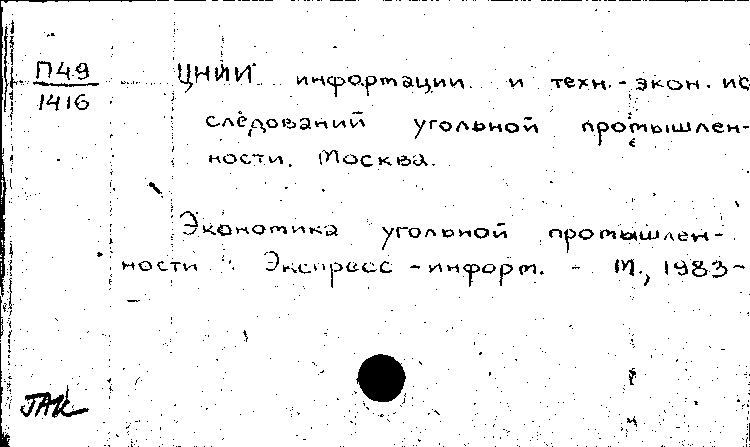 П49
1416
ЦНИИ информации и техн.-экон. ис
следований угольной промышлен-
ности. Москва.
Экономика угольной промышлен-
ности : Экспресс-информ. - М., 1983-
ЈАК